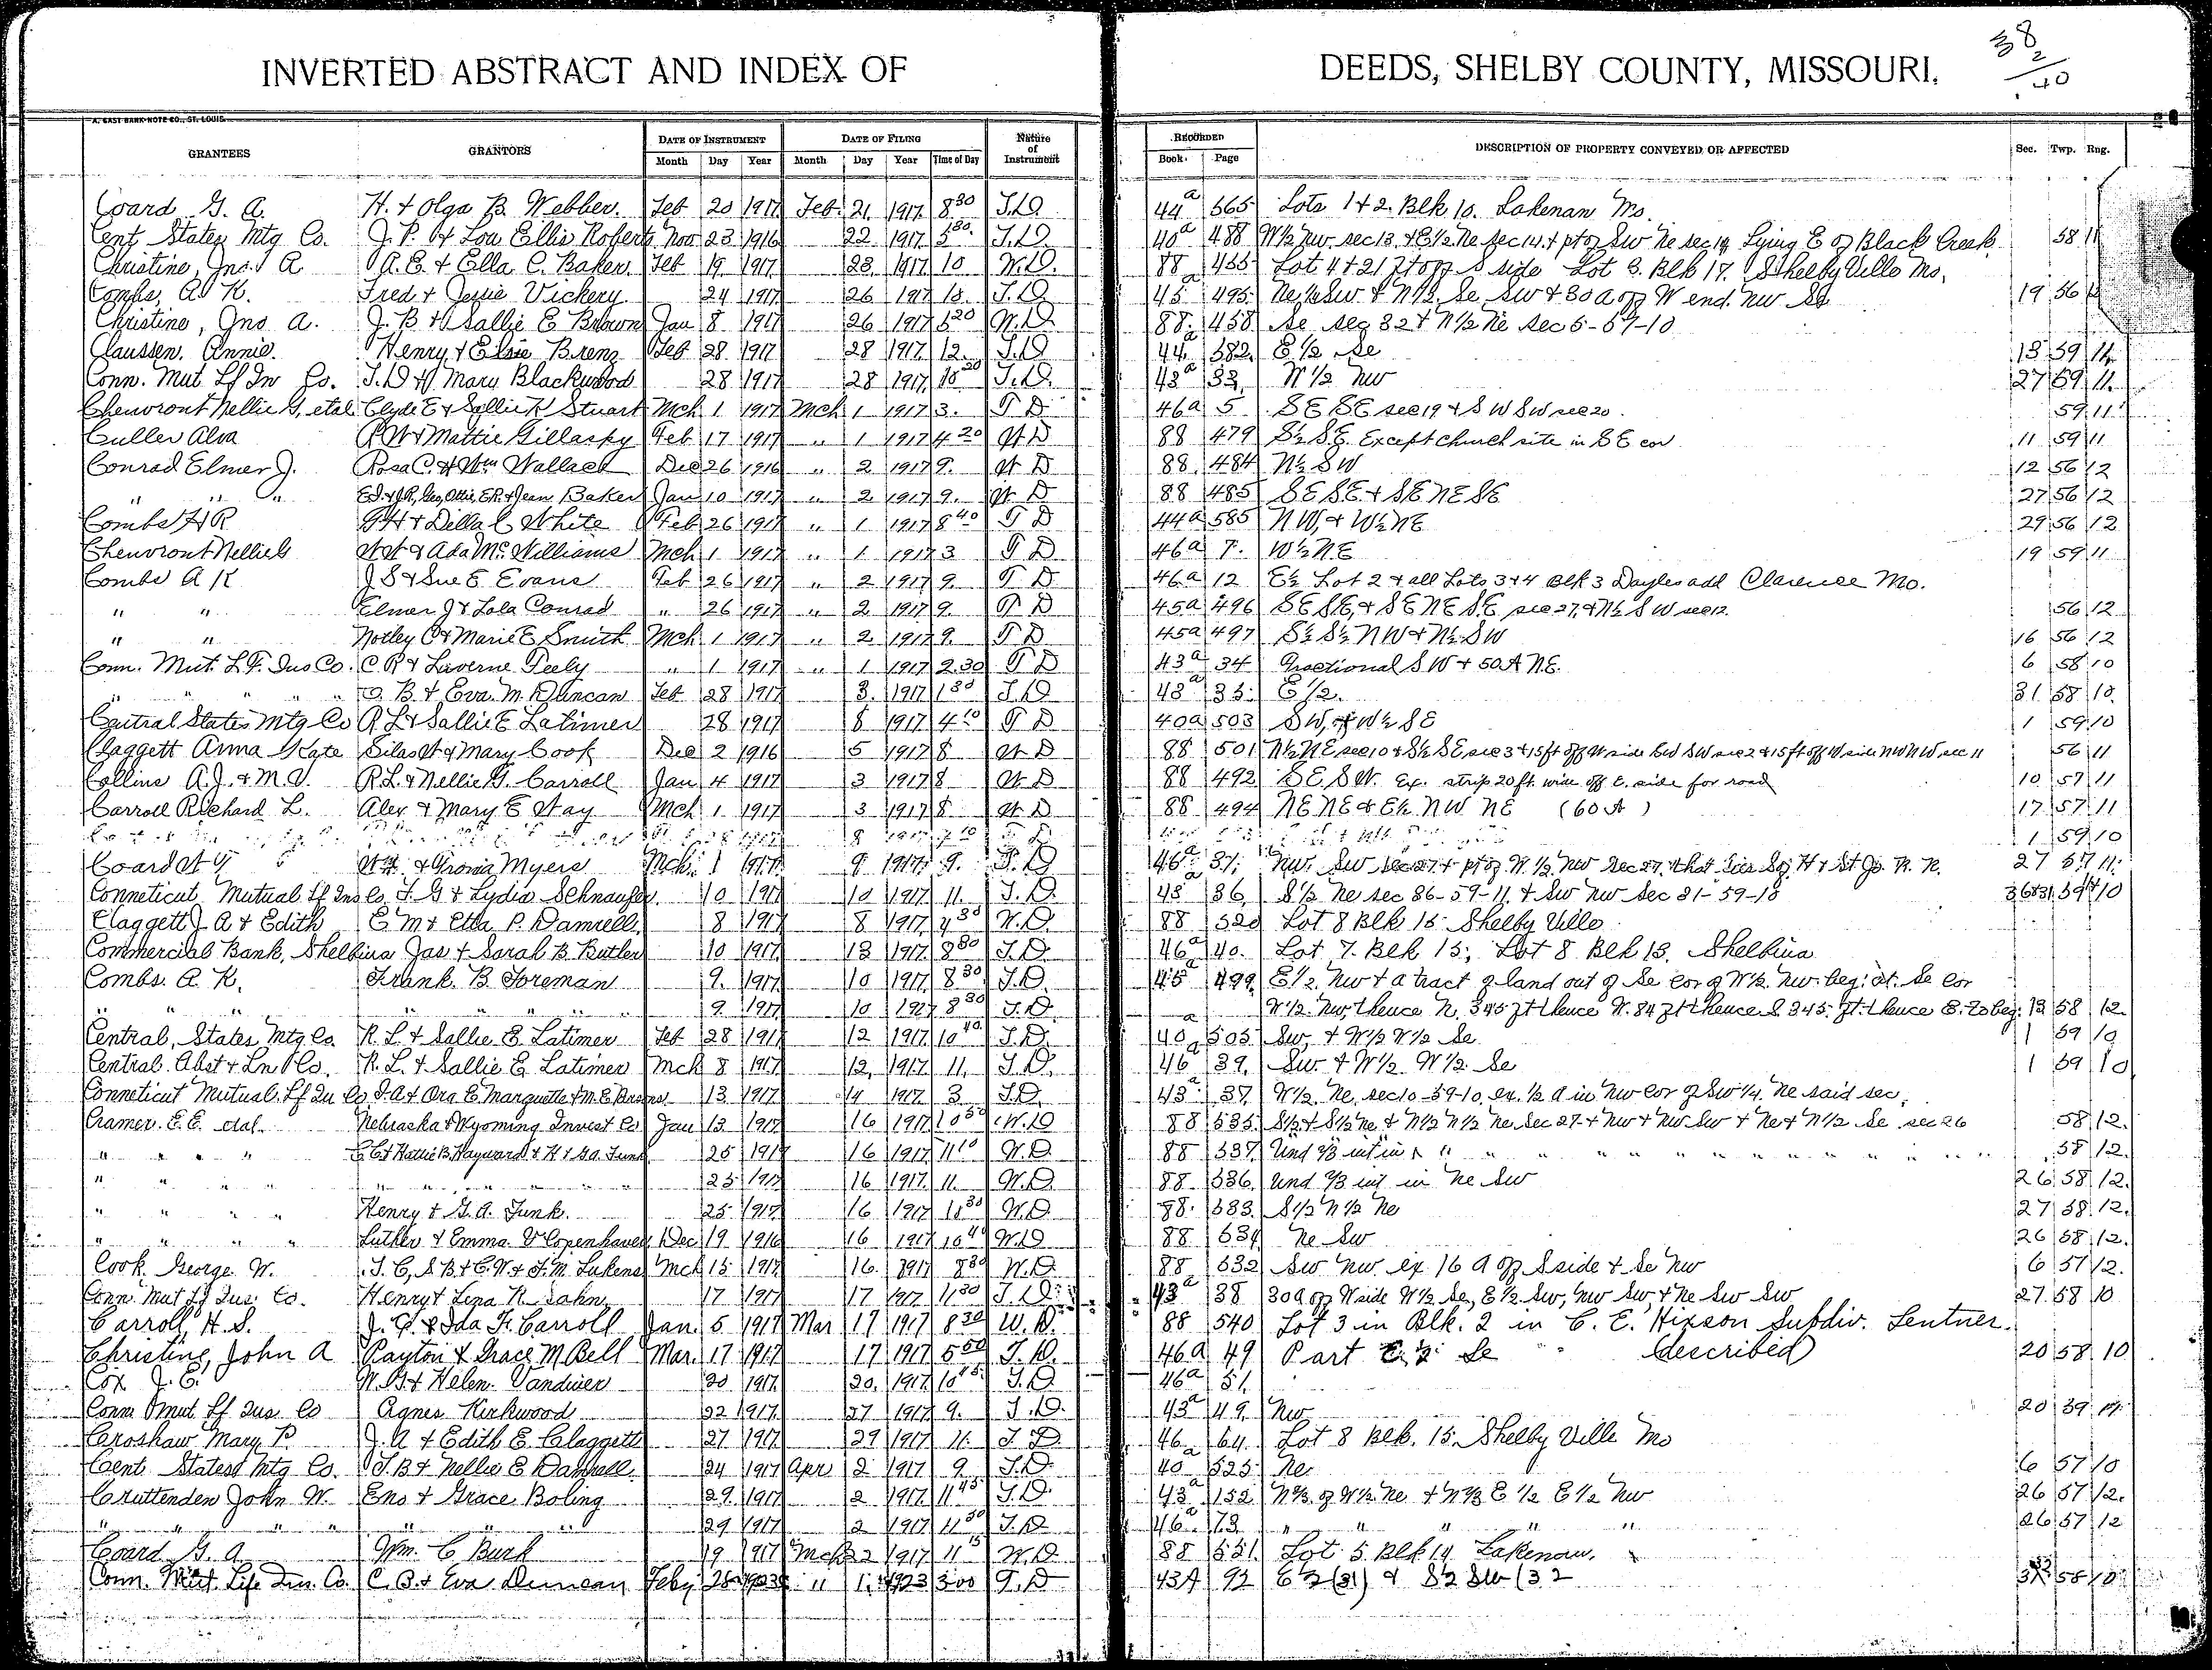 38
2
40
INVERTED ABSTRACT AND INDEX OF DEEDS, SHELBY COUNTY, MISSOURI.
A. EAST BANK-NOTE CO., ST. LOUIS.
GRANTEES GRANTORS DATE OF INSTRUMENT DATE OF FILING Nature of Instrument RECORDED DESCRIPTION OF PROPERTY CONVEYED OR AFFECTED Sec. Twp. Rng.
Month Day Year Month Day Year Time of Day Book Page
Coard G. A. H. & Olga B. Webber. Feb 20 1917 Feb. 21 1917 8 30 T.D. 44a 565 Lots 1 & 2. Blk 10. Lakenan Mo.
Cent States Mtg Co. J. P. & Lou Ellis Roberts Nov 23 1916 22 1917 T.D. 40a 488 W½ Nw sec 13 & E½ Ne sec 14 & pt of Sw Ne sec 14 Lying E of Black Creek 58 11
Christine, Jno. A A. E. & Ella C. Baker. Feb 19 1917 23 1917 10 W.D. 88 455 Lot 4 & 21 ft off S side Lot 3. Blk 17. Shelby Ville Mo.
Combs, A K. Fred & Jessie Vickery 24 1917 26 1917 T.D. 45a 495 Ne ¼ Sw & N½ Se Sw & 30 a off W end. Nw Se 19 56
Christine, Jno a. J. B. & Sallie E Brown Jan 8 1917 26 1917 5 20 W.D. 88 458 Se sec 32 & N½ Ne sec 5-57-10
Claussen, Annie. Henry & Elsie Brenz Feb 28 1917 28 1917 12 T.D. 44a 582 E ½ Se 13 59 11
Conn. Mut Lf In Co. T. D. & Mary Blackwood 28 1917 28 1917 10 30 T.D. 43a 33 W ½ Nw 27 59 11
Cheuvront Nellie G. etal Clyde E & Sallie K Stuart Mch 1 1917 Mch 1 1917 3 T D 46a 5 SE SE sec 19 & SW SW sec 20 59 11
Culler Alva R W & Mattie Gillaspy Feb 17 1917 " 1 1917 4 20 W D 88 479 S½ S.E. Except church site in SE cor 11 59 11
Conrad Elmer J. Rosa C. & Wm Wallace Dec 26 1916 " 2 1917 9 W D 88 484 N½ SW 12 56 12
" " " Ed. & J.R., Geo, Ottis, E.R. & Jean Baker Jan 10 1917 " 2 1917 9 W D 88 485 SE SE & SE NE SE 27 56 12
Combs A R G H & Della C White Feb 26 1917 " 1 1917 8 40 T D 44a 585 NW, & W½ NE 29 56 12
Cheuvront Nellie G W W & Ada McWilliams Mch 1 1917 " 1 1917 3 T D 46a 7 W½ N.E 19 59 11
Combs A K J S & Sue E Evans Feb 26 1917 " 2 1917 9 T D 46a 12 E½ Lot 2 & all Lots 3 & 4 Blk 3 Dayles add Clarence Mo.
" " Elmer J & Lola Conrad " 26 1917 " 2 1917 9 T D 45a 496 SE SE, & SE NE SE sec 27, & N½ SW sec 12 56 12
" " Notley C & Marie E Smith Mch 1 1917 " 2 1917 9 T D 45a 497 S½ S½ NW & N½ SW 16 56 12
Conn. Mut. L.F. Ins Co. C R & Laverne Feely " 1 1917 " 1 1917 2.30 T D 43a 34 Fractional SW & 50A N.E. 6 58 10
" " " " O. B. & Eva. M. Duncan Feb 28 1917 3 1917 1 30 T.D. 43a 35 E ½ 31 58 10
Central States Mtg Co R L & Sallie E Latimer 28 1917 8 1917 4 10 T D 40a 503 SW, & W½ SE 1 59 10
Claggett Anna Kate Silas W & Mary Cook Dec 2 1916 5 1917 8 W D 88 501 N½ NE sec 10 & S½ SE sec 3 & 15 ft off W side SW SW sec 2 & 15 ft off W side NW NW sec 11 56 11
Collins A.J. & M.V. R.L. & Nellie G. Carroll Jan 4 1917 3 1917 8 W D 88 492 SE, SW. Ex. strip 20 ft. wide off E. side for road 10 57 11
Carroll Richard L. Alex & Mary E Way Mch 1 1917 3 1917 8 W D 88 494 NE NE & E½ NW NE (60 A) 17 57 11
8 1 59 10
Coard Wm. & Gronia Myers Mch. 1 1917 9 1917 9 T.D. 46a 31 Nw. Sw sec 27 & pt of W. ½ Nw sec 27, that lies So. H & St Jo. R. R. 27 57 11
Conneticut Mutual Lf Ins Co J. G & Lydia Schnaufer 10 1917 10 1917 11 T.D. 43a 36 S½ Ne sec 36-59-11 & Sw Nw sec 31-59-10 36&31 59 10
Claggett J A & Edith E M & Etta P. Damrell 8 1917 8 1917 4 30 W.D. 88 520 Lot 8 Blk 15 Shelby Ville
Commercial Bank, Shelbina Jas & Sarah B. Butler 10 1917 13 1917 8 30 T.D. 46a 40 Lot 7. Blk 15; Lot 8 Blk 13. Shelbina
Combs. A. K. Frank. B. Foreman 9 1917 10 1917 8 30 T.D. 45a 499 E½ Nw & a tract of land out of Se cor of W½ Nw. beg. at. Se cor
" " " " " 9 1917 10 1917 8 30 T.D. W½ Nw thence N. 345 ft thence W. 84 ft thence S 345 ft. thence E. to beg. 13 58 12
Central, States Mtg Co. R. L. & Sallie E. Latimer Feb 28 1917 12 1917 10 40 T.D. 40a 505 Sw, & W½ W½ Se 1 59 10
Central. Abst & Ln Co. R. L. & Sallie E Latimer Mch 8 1917 12 1917 11 T.D. 46a 39 Sw & W½ W½ Se 1 59 10
Conneticut Mutual Lf In Co J. A & Ora E. Marquette & M. E. 13 1917 14 1917 3 T.D. 43a 37 W½ Ne, sec 10-59-10, ex. ½ a in Nw cor of Sw ¼ Ne said sec.
Cramer. E. E. etal. Nebraska & Wyoming Invest Co Jan 13 1917 16 1917 10 50 W.D. 88 535 S½ & S½ Ne & N½ N½ Ne, sec 27 & Nw & Nw Sw & Ne & N½ Se sec 26 58 12
" " " " C C & Hattie B. Hayward & H & G A. Funk 25 1917 16 1917 11 10 W.D. 88 537 Und ⅔ int in " " " " " " 58 12
" " " " " " " " " 25 1917 16 1917 11 W.D. 88 536 Und ⅔ int in Ne Sw 26 58 12
" " " " Henry & G. A. Funk. 25 1917 16 1917 W.D. 88 533 S½ N½ Ne 27 58 12
" " " " Luther & Emma V Copenhaver Dec 19 1916 16 1917 10 40 W.D. 88 534 Ne Sw 26 58 12
Cook George W. T. C, S B & C. W & F. M. Lukens Mch 15 1917 16 1917 8 30 W.D. 88 532 Sw Nw ex 16 a off S side & Se Nw 6 57 12
Conn. Mut Lf Ins. Co. Henry & Lena R. Jahn 17 1917 17 1917 11 30 T.D. 43a 38 30 a off W side W½ Se, E½ Sw, Nw Sw, & Ne Sw Sw 27 58 10
Carroll, H. S. J. C. & Ida F. Carroll Jan. 5 1917 Mar 17 1917 8 30 W.D. 88 540 Lot 3 in Blk. 2 in C. E. Hixson Subdiv. Lentner.
Christine, John A Payton & Grace M Bell Mar. 17 1917 17 1917 5 50 T.D. 46a 49 Part E ½ Se described 20 58 10
Cox J. E. W. G & Helen Vandiver 20 1917 20 1917 10 45 T.D. 46a 51
Conn Mut Lf Ins. Co Agnes Kirkwood 22 1917 27 1917 9 T.D. 43a 49 Nw 20 59
Croshaw Mary P. J. A & Edith E. Claggett 27 1917 29 1917 11 T.D. 46a 64 Lot 8 Blk. 15. Shelby Ville Mo
Cent States Mtg Co. T. B & Nellie E Damrell 24 1917 Apr 2 1917 9 T.D. 40a 525 Ne 6 57 10
Cruttenden John W. Eno & Grace Boling 29 1917 2 1917 11 45 T.D. 43a 152 N⅔ of W½ Ne & N⅔ E ½ E½ Nw 26 57 12
" " " " " " 29 1917 2 1917 11 50 T.D. 46a 73 " " " " " 26 57 12
Coard G. A Wm. C Burk 19 1917 Mch 22 1917 11 15 W.D. 88 551 Lot 5 Blk 14 Lakenan.
Conn. Mut. Life Ins. Co. C. B. & Eva Duncan Feby 28 1923 " 1 1923 3 00 T.D 43A 92 E½ (31) & S½ SW (32 58 10